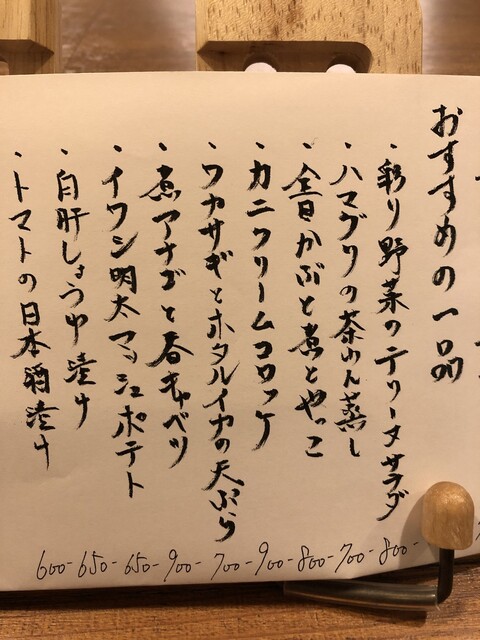 おすすめの一品
・彩り野菜のテリーヌサラダ 800-
・ハマグリの茶わん蒸し 700-
・金目かぶと煮とやっこ 800-
・カニクリームコロッケ 900-
・ワカサギとホタルイカの天ぷら 700-
・煮アナゴと春キャベツ 900-
・イワシ明太マッシュポテト 650-
・白肝しょうゆ漬け 650-
・トマトの日本酒漬け 600-